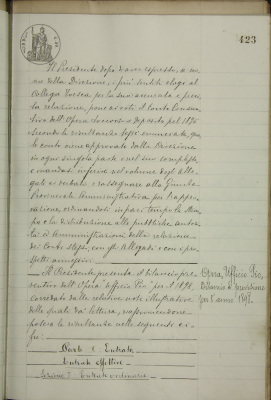 423
Il Presidente dopo d'aver espresso, a no-
me della Direzione, i più sentiti elogi al
Collega Tosca per la sua accurata e preci-
sa relazione, pone ai voti il Conto Consun-
tivo dell'Opera
Secondo le risultanze sopra enunciate, qua-
le conto viene approvato dalla Direzione
in ogni singola parte e nel suo complesso
e mandasi inserire nel volume degli Alle-
gati ai verbali e rassegnare alla Giunta
Provinciale Amministrativa per l'appro-
vazione, ordinandosi in pari tempo la stam-
pa e la distribuzione alle pubbliche autori-
tà ed Amministrazioni della relazione
dei conti stessi, con gli Allegati e coi ri-
spetti annessivi.
Il Presidente presenta il bilancio pre-
ventivo dell'Opera "Ufficio Pio" pel 1898,
corredato dalle relative note illustrative
delle quali dà lettura, riassumendone
poscia le risultanze nelle seguenti ci-
fre:
Opera, Ufficio Pio
Bilancio di previsione
per l'anno 1898.
Parte I Entrata
Entrate effettive
Sezione I Entrate ordinarie